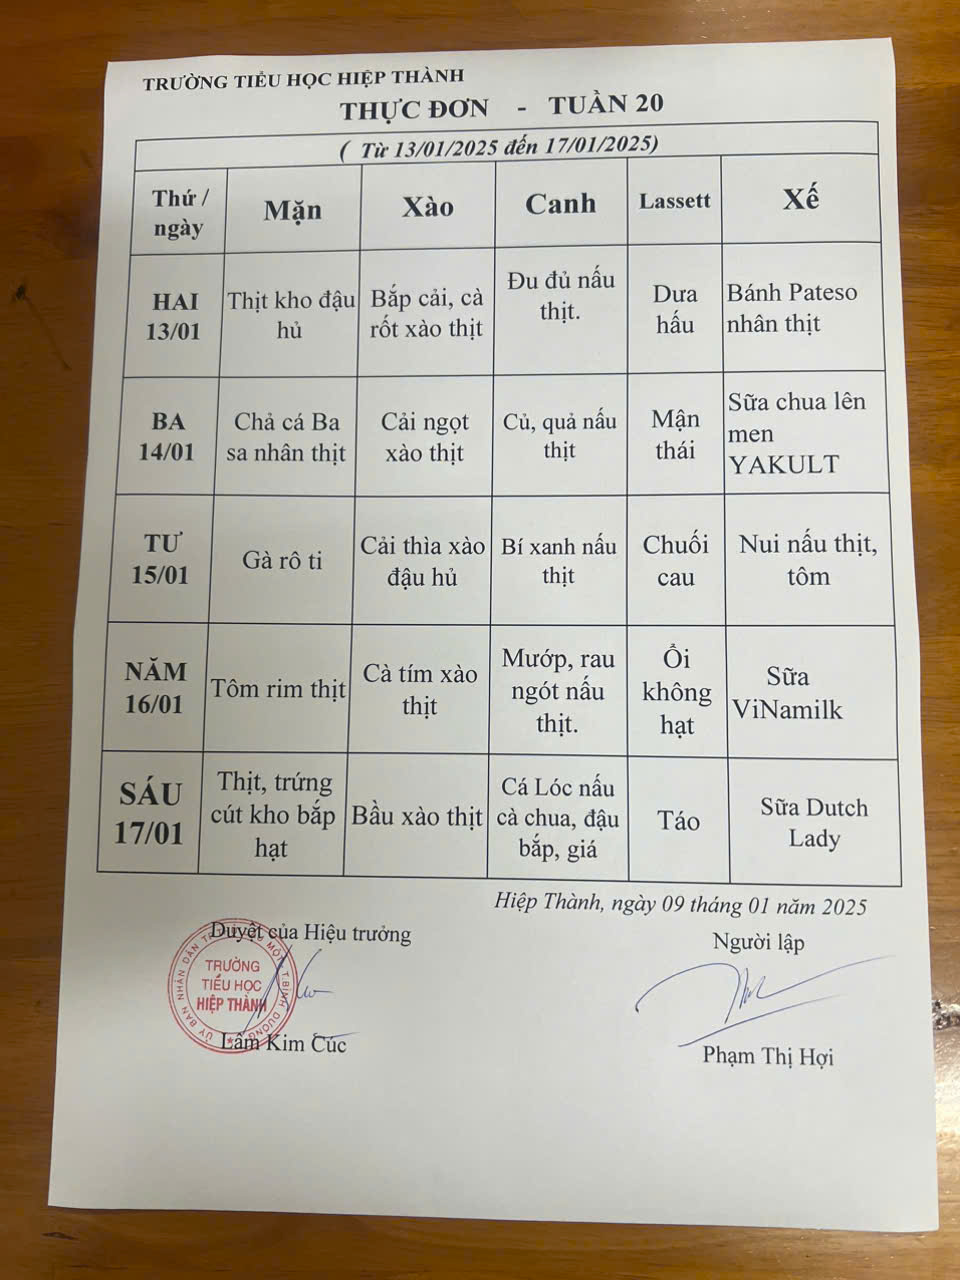 TRƯỜNG TIỂU HỌC HIỆP THÀNH
THỰC ĐƠN - TUẦN 20
( Từ 13/01/2025 đến 17/01/2025)
Thứ /
ngày
Mặn
Xào
Canh
Lassett
Xế
HAI
13/01
Thịt kho đậu
hủ
Bắp cải, cà
rốt xào thịt
Đu đủ nấu
thịt.
Dưa
hấu
Bánh Pateso
nhân thịt
BA
14/01
Chả cá Ba
sa nhân thịt
Cải ngọt
xào thịt
Củ, quả nấu
thịt
Mận
thái
Sữa chua lên
men
YAKULT
TƯ
15/01
Gà rô ti
Cải thìa xào
đậu hủ
Bí xanh nấu
thịt
Chuối
cau
Nui nấu thịt,
tôm
NĂM
16/01
Tôm rim thịt
Cà tím xào
thịt
Mướp, rau
ngót nấu
thịt.
Ổi
không
hạt
Sữa
ViNamilk
SÁU
17/01
Thịt, trứng
cút kho bắp
hạt
Bầu xào thịt
Cá Lóc nấu
cà chua, đậu
bắp, giá
Táo
Sữa Dutch
Lady
Hiệp Thành, ngày 09 tháng 01 năm 2025
Duyệt của Hiệu trưởng
Người lập
TRƯỜNG
TIỂU HỌC
HIỆP THÀNH
Lâm Kim Cúc
Phạm Thị Hợi